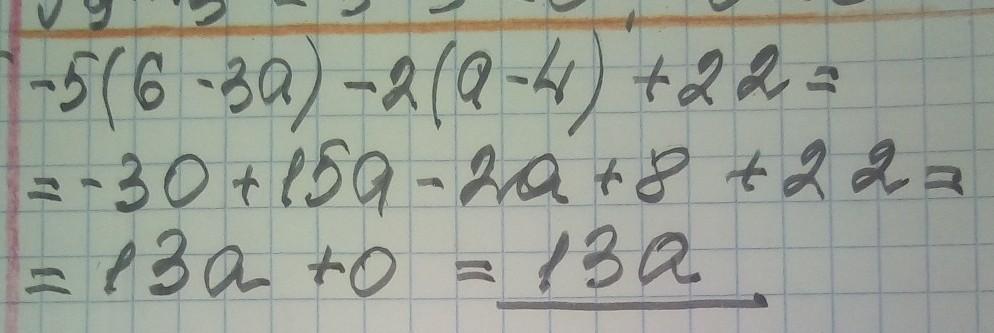 -5(6-3a)-2(a-4)+22=
=-30+15a-2a+8+22=
=13a+0=13a